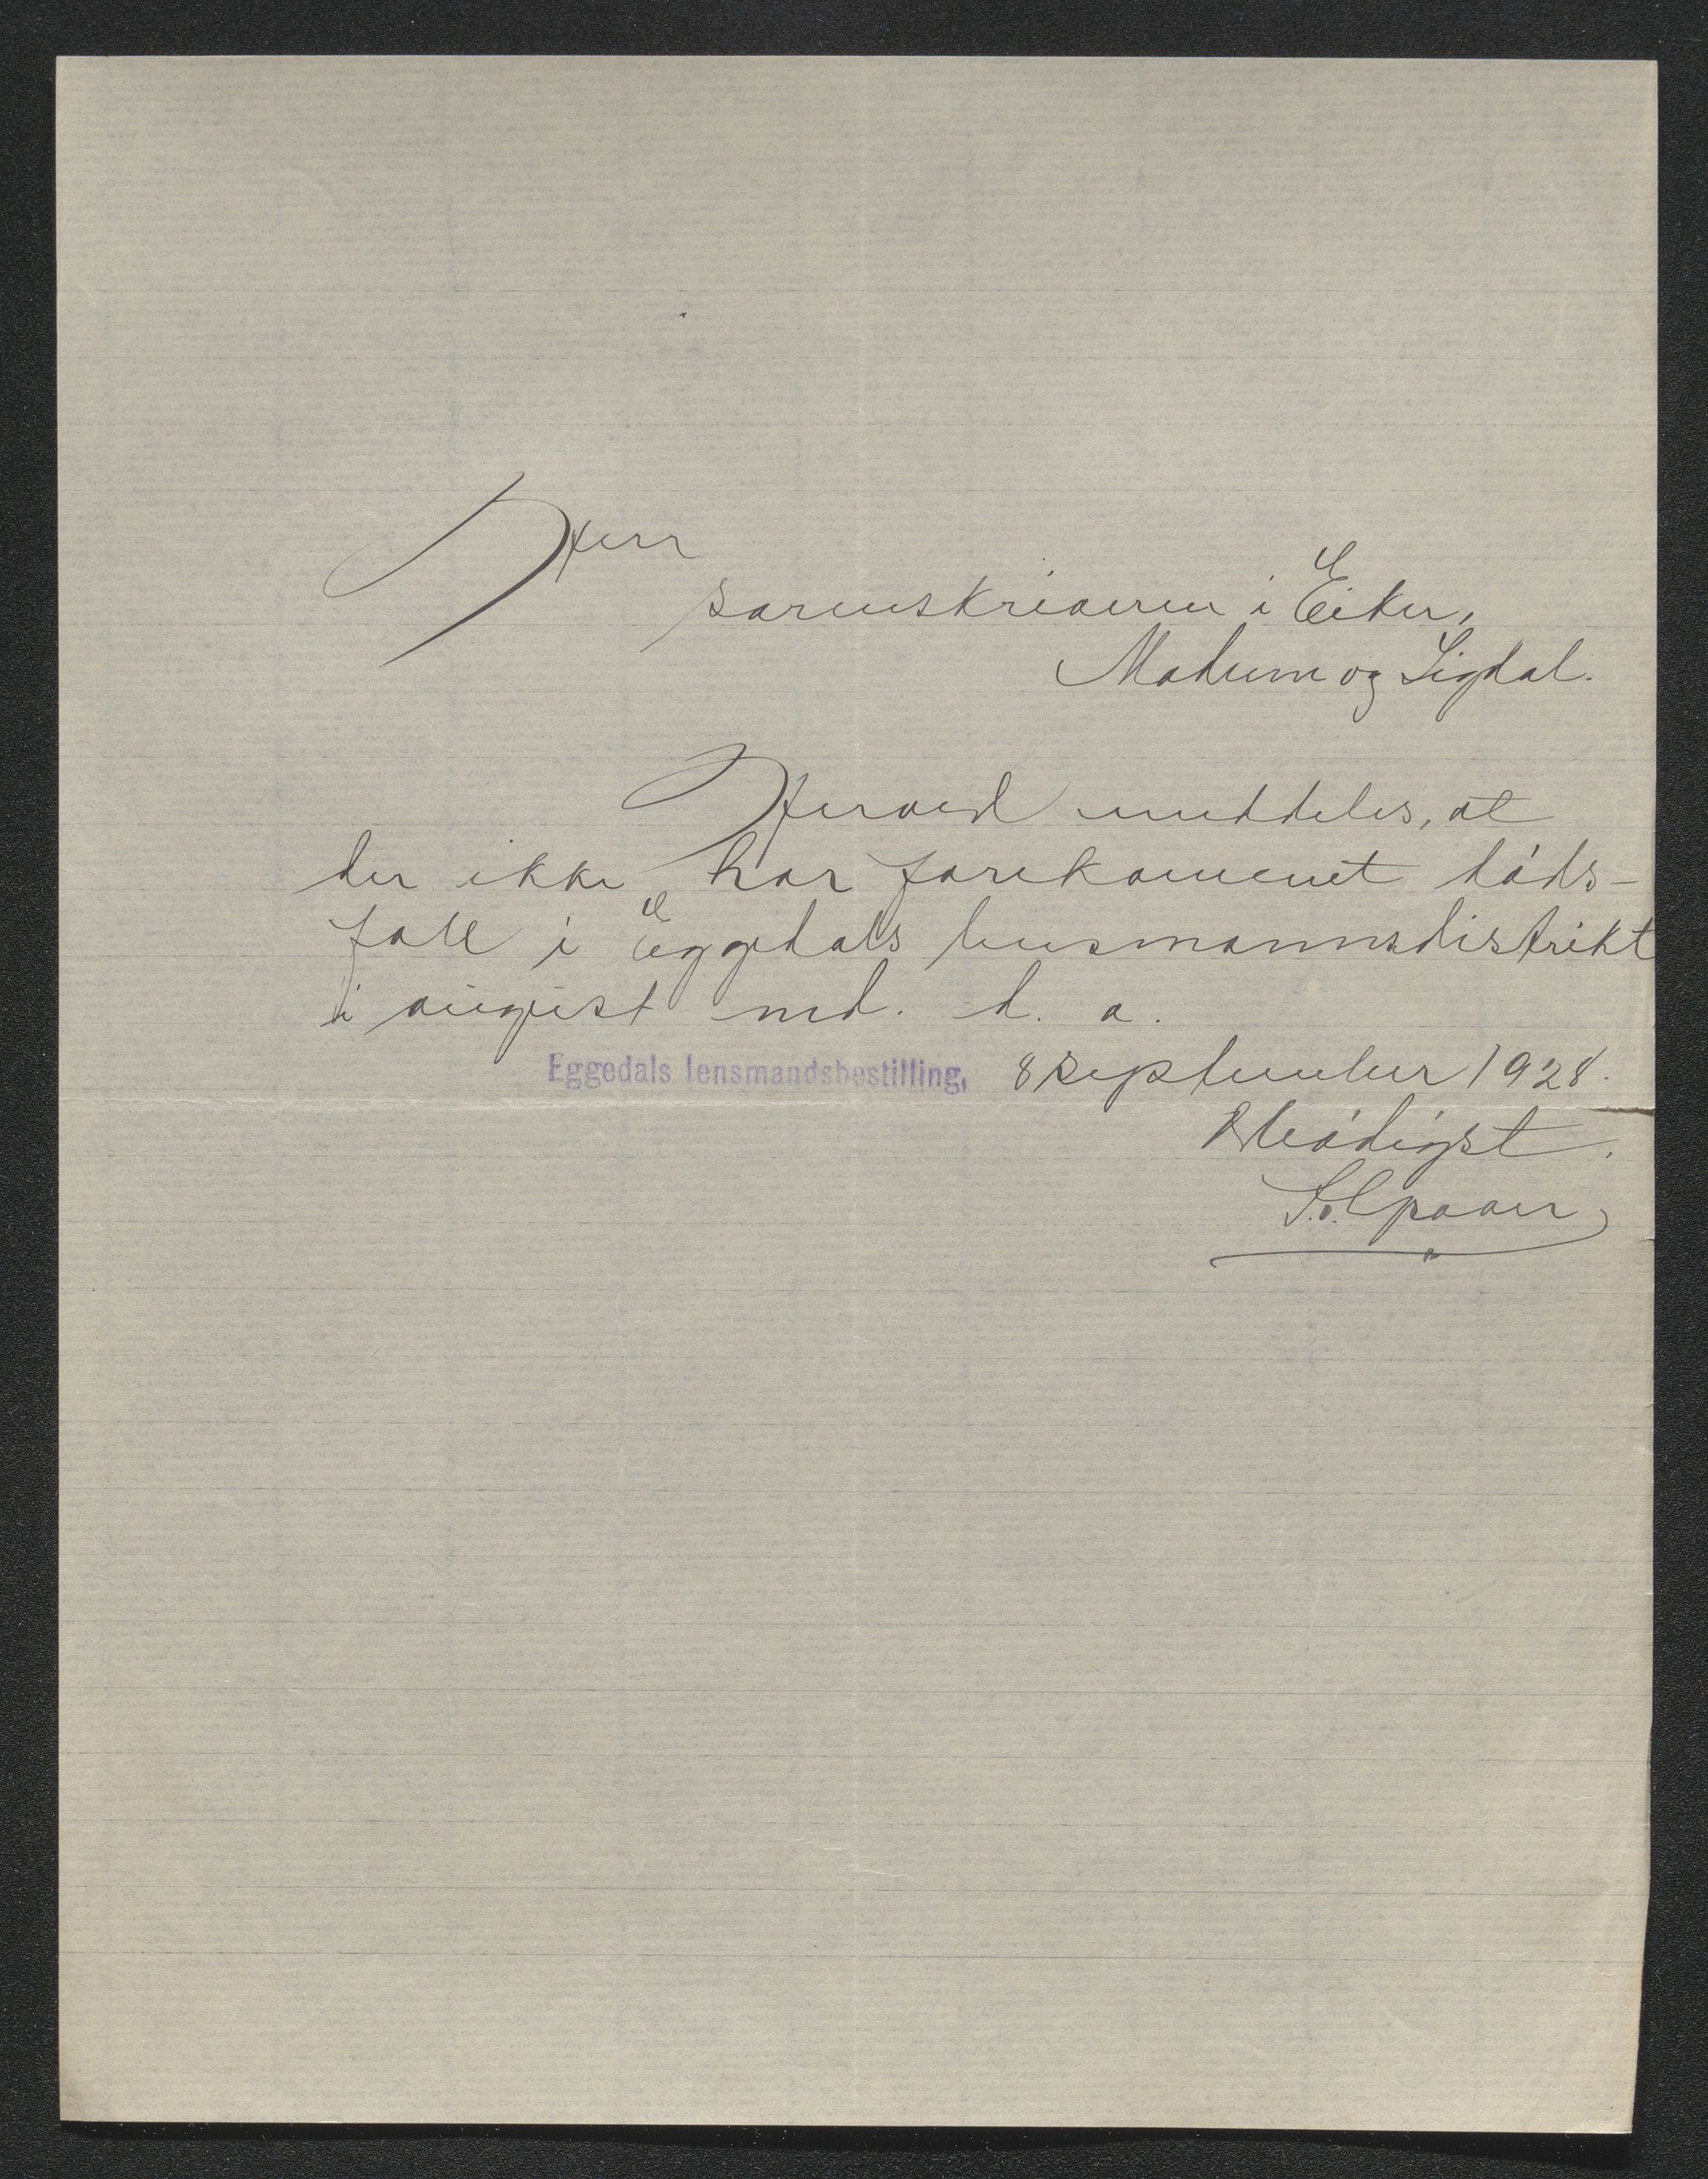 Herr
sorenskriveren i Eiker,
Modum og Sigdal.
Herved meddeles, at
der ikke har forekommet døds-
fall i Eggedals lensmannsdistrikt
i august md. d. a.
Eggedals lensmandsbestilling, 8 september 1928.
Ærbødigst